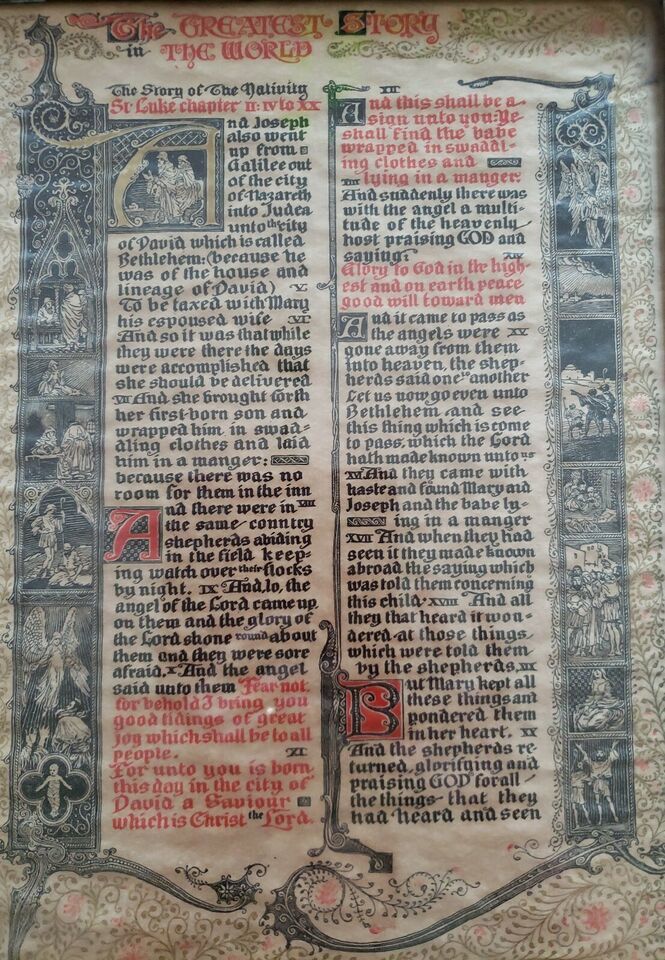 The GREATEST STORY
in THE WORLD
The Story of The Nativity
St Luke chapter II: IV to XX
And Joseph
also went
up from
Galilee out
of the city
of Nazareth
into Judea
unto the city
of David which is called
Bethlehem: (because he
was of the house and
lineage of David) V
To be taxed with Mary
his espoused wife VI
And so it was that while
they were there the days
were accomplished that
she should be delivered
VII And she brought forth
her first-born son and
wrapped him in swad-
dling clothes and laid
him in a manger:
because there was no
room for them in the inn
And there were in VIII
the same country
shepherds abiding
in the field keep-
ing watch over their flocks
by night. IX And, lo, the
angel of the Lord came up
on them and the glory of
the Lord shone round about
them and they were sore
afraid. X And the angel
said unto them Fear not
for behold I bring you
good tidings of great
joy which shall be to all
people. XI
For unto you is born
this day in the city of
David a Saviour
which is Christ the Lord.
XII
And this shall be a
sign unto you: Ye
shall find the babe
wrapped in swaddl-
ing clothes and
XIII lying in a manger.
And suddenly there was
with the angel a multi-
tude of the heavenly
host praising GOD and
saying: XIV
Glory to God in the high-
est and on earth peace
good will toward men
And it came to pass as
the angels were XV
gone away from them
into heaven, the shep-
herds said one to another
Let us now go even unto
Bethlehem and see
this thing which is come
to pass, which the Lord
hath made known unto us
XVI And they came with
haste and found Mary and
Joseph and the babe ly-
ing in a manger
XVII And when they had
seen it they made known
abroad the saying which
was told them concerning
this child. XVIII And all
they that heard it won-
dered at those things
which were told them
by the shepherds. XIX
But Mary kept all
these things and
pondered them
in her heart. XX
And the shepherds re-
turned, glorifying and
praising GOD for all
the things that they
had heard and seen